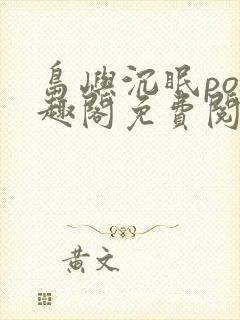 島嶼沉眠po
趣閣免費閱
黃文